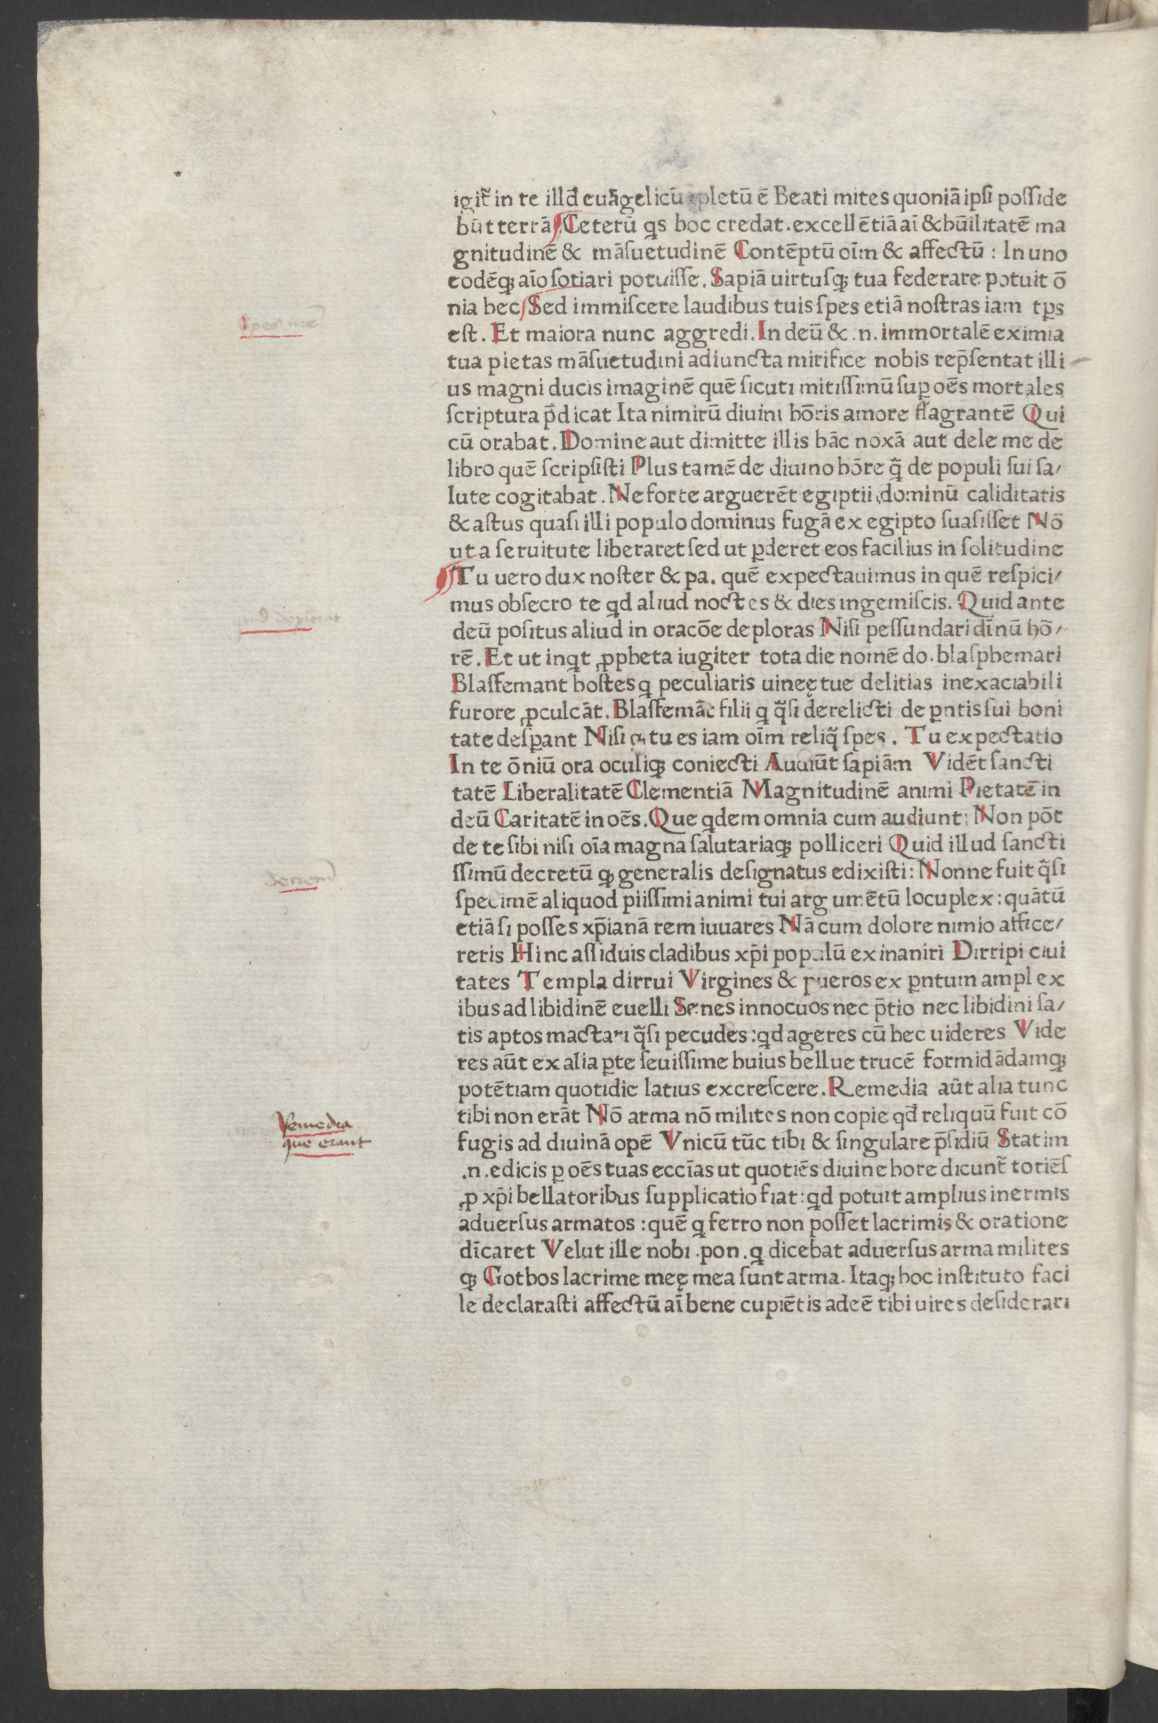 igit᷑ in te illđ euãgelicũ pletũ ẽ Beati mites quoniã ipsi posside
bũt terrã Ceterũ qͥs hoc credat. excellẽtiã ai᷑ & hũilitatẽ ma
gnitudinẽ & mãsuetudinẽ Contẽptũ oi᷑m & affectũ : In uno
eodẽqꝫ ai᷑o sotiari potuisse. Sapiã uirtusqꝫ tua federare potuit õ
nia hec Sed immiscere laudibus tuis spes etiã nostras iam tꝑs
est. Et maiora nunc aggredi. In deũ & .n. immortalẽ eximia
tua pietas mãsuetudini adiuncta mirifice nobis rep̃sentat illi
us magni ducis imaginẽ quẽ sicuti mitissimũ suꝑ oẽs mortales
scriptura p̃dicat Ita nimirũ diuini hõris amore flagrantẽ Qui
cũ orabat. Domine aut dimitte illis hãc noxã aut dele me de
libro quẽ scripsisti Plus tamẽ de diuino hõre q̃ de populi sui sa/
lute cogitabat. Ne forte arguerẽt egiptii dominũ caliditatis
& astus quasi illi populo dominus fugã ex egipto suasisset Nõ
ut a seruitute liberaret sed ut ꝑderet eos facilius in solitudine
Tu uero dux noster & pa. quẽ expectauimus in quẽ respici/
mus obsecro te qđ aliud noctes & dies ingemiscis. Quid ante
deũ positus aliud in oracõe deploras Nisi pessundari di᷑nũ hõ/
rẽ. Et ut inqͥt ꝓpheta iugiter tota die nomẽ do. blasphemari
Blasfemant hostes qͥ peculiaris uineę tue delitias inexaciabili
furore ꝓculcãt. Blasfemãt filii qͥ q̃si derelicti de ꝑntis sui boni
tate desꝑant Nisi qͥ tu es iam oi᷑m reliq̃ spes. Tu expectatio
In te õniũ ora oculiqꝫ coniecti Audiũt sapiãm Vidẽt sancti
tatẽ Liberalitatẽ Clementiã Magnitudinẽ animi Pietatẽ in
deũ Caritatẽ in oẽs. Que qͥdem omnia cum audiunt: Non põt
de te sibi nisi oi᷑a magna salutariaqꝫ polliceri Quid illud sancti
ssimũ decretũ qꝫ generalis designatus edixisti: Nonne fuit q̃si
specimẽ aliquod piissimi animi tui argumẽtũ locuplex: quãtũ
etiã si posses xp̃ianã rem iuuares Nã cum dolore nimio affice/
reris Hinc assiduis cladibus xp̃i populũ exinaniri Dirripi ciui
tates Templa dirrui Virgines & pueros ex ꝑntum amplex
ibus ad libidinẽ euelli Senes innocuos nec p̃tio nec libidini sa/
tis aptos mactari q̃si pecudes: qđ ageres cũ hec uideres Vide
res aũt ex alia ꝑte seuissime huius bellue trucẽ formidãdamqꝫ
potẽtiam quotidie latius excrescere. Remedia aũt alia tunc
tibi non erãt Nõ arma nõ milites non copie qđ reliquũ fuit cõ
fugis ad diuinã opẽ Vnicũ tũc tibi & singulare p̃sidiũ Statim
.n. edicis ꝑ oẽs tuas ecci᷑as ut quotiẽs diuine hore dicunt᷑ totiẽs
ꝓ xp̃i bellatoribus supplicatio fiat: qđ potuit amplius inermis
aduersus armatos: quẽ qͥ ferro non posset lacrimis & oratione
di᷑caret Velut ille nobi .pon. qͥ dicebat aduersus arma milites
qꝫ Gothos lacrime meę mea sũnt arma. Itaqꝫ hoc instituto faci
le declarasti affectũ ai᷑ bene cupiẽtis adeẽ tibi uires desiderari
Remedia
que erant